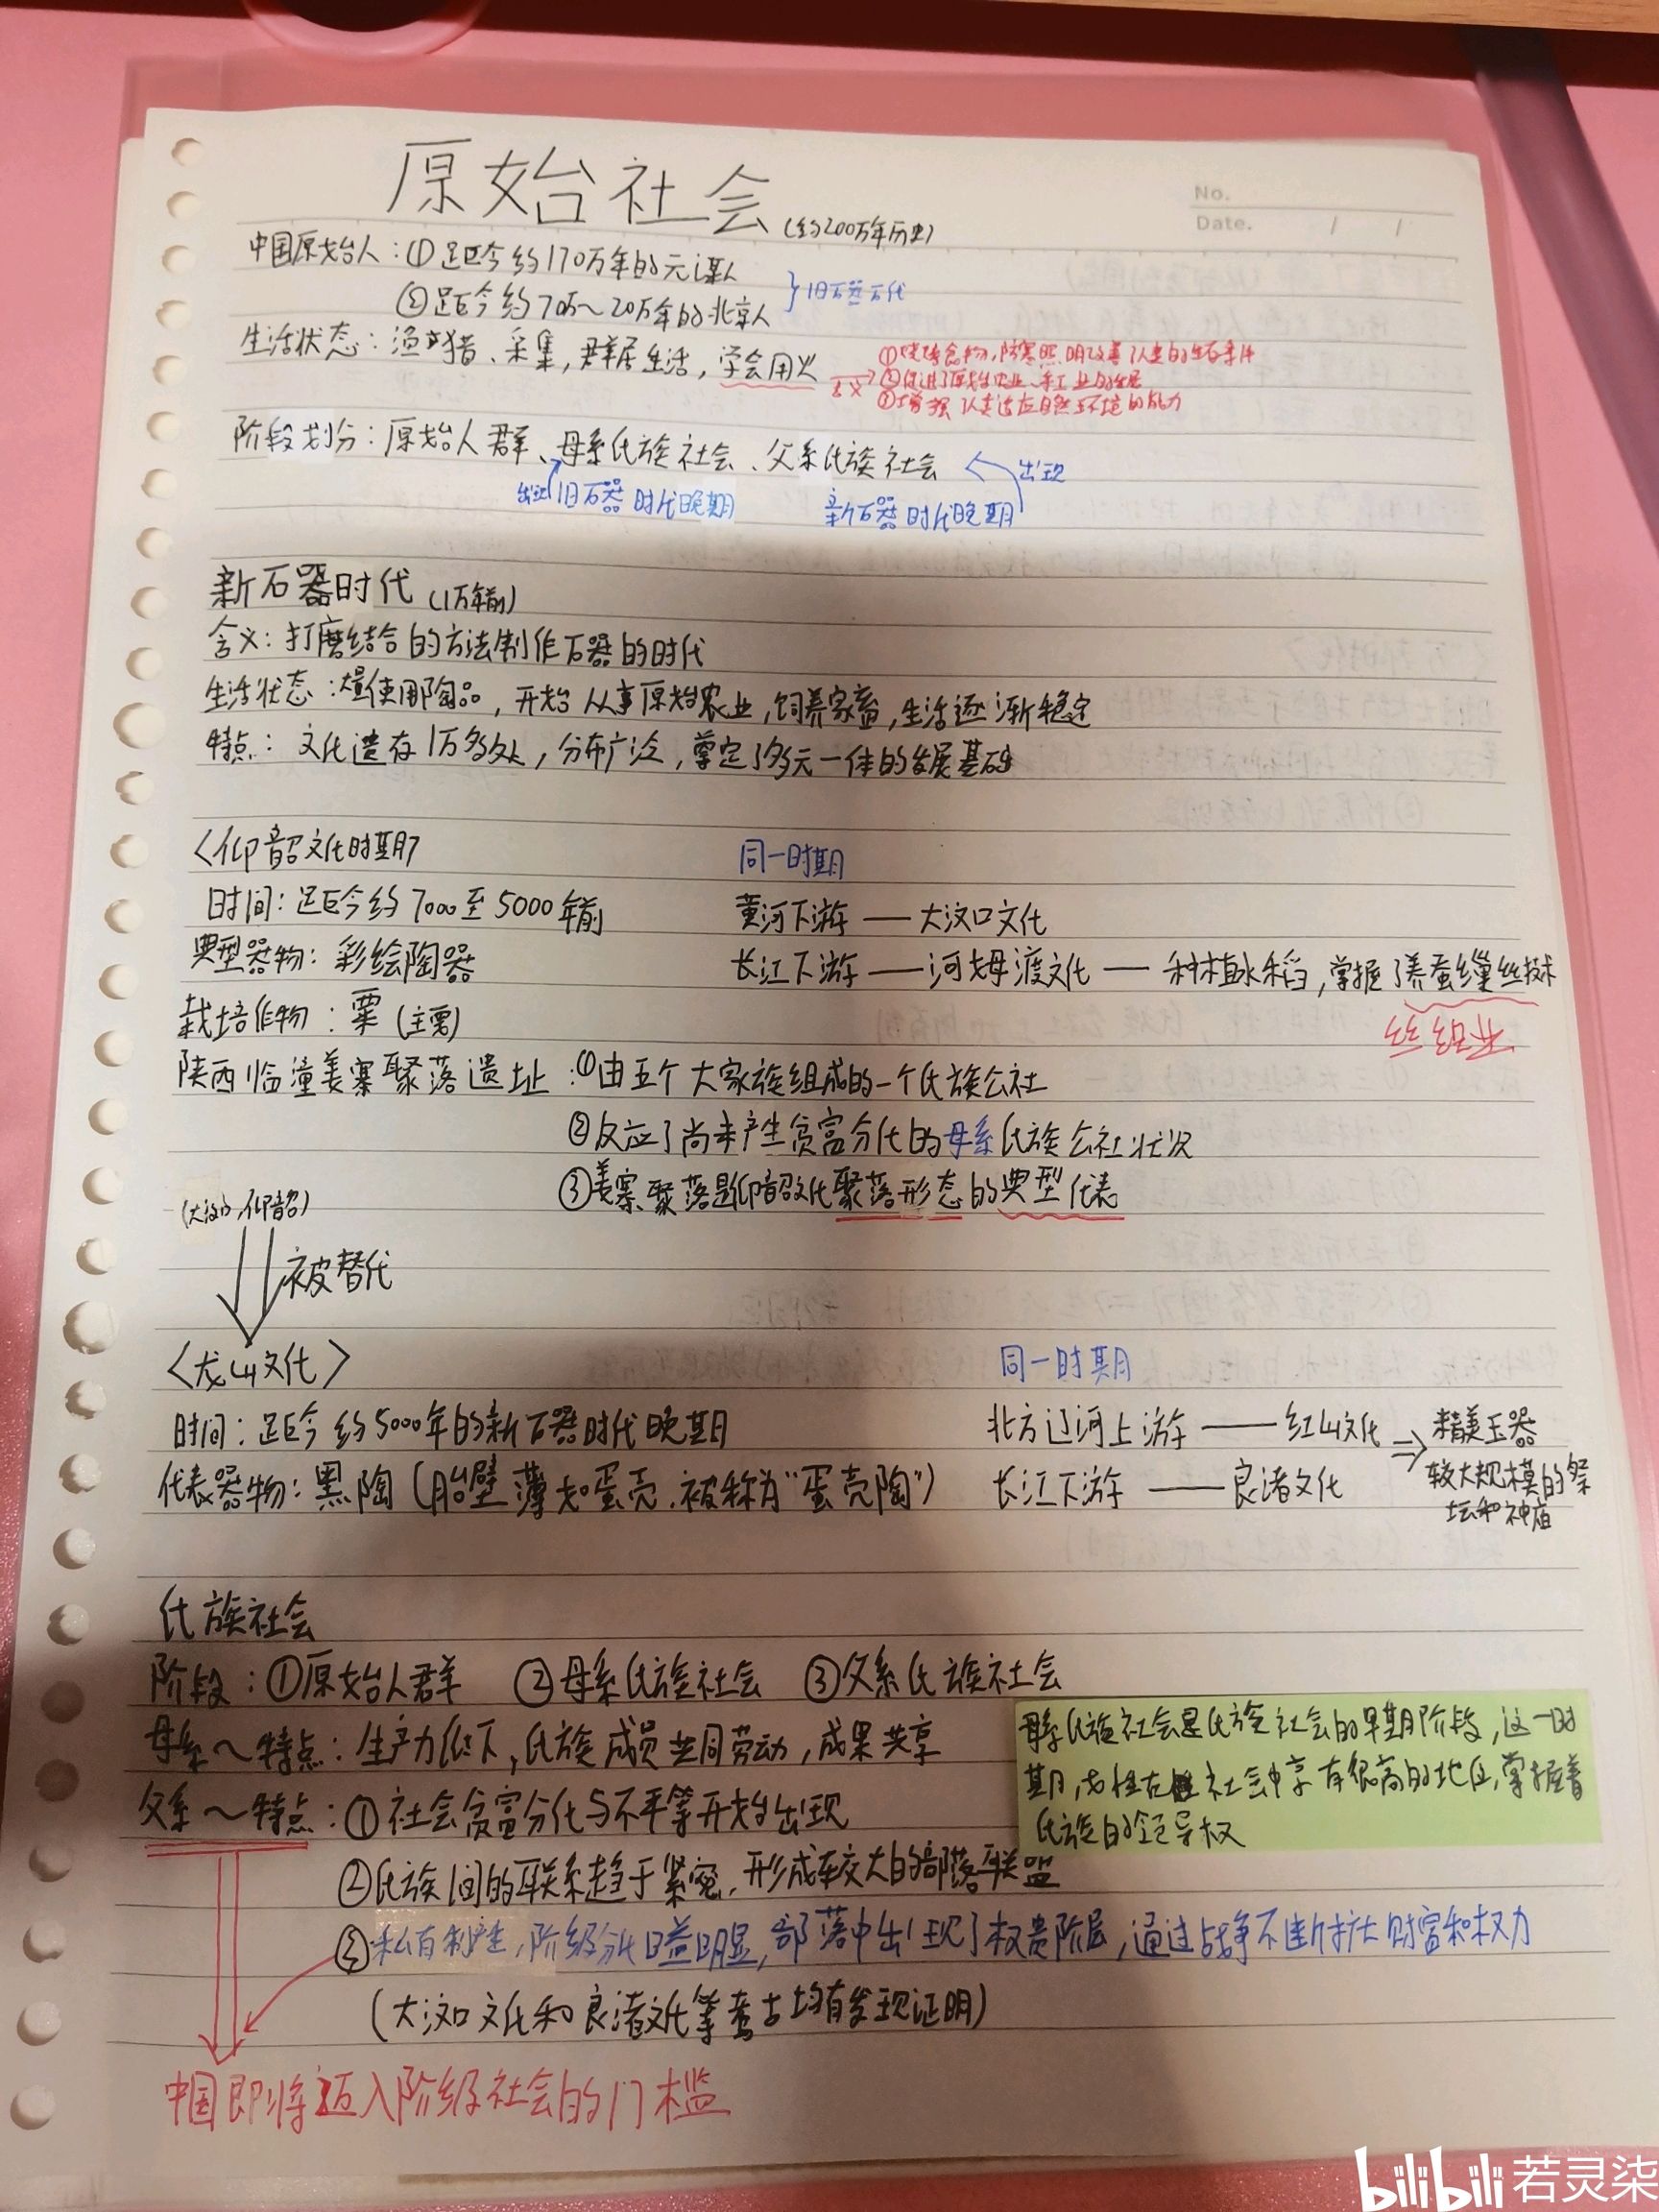 原始社会(约200万年历史)
No.
Date. / /
中国原始人：①距今约170万年的元谋人
②距今约70万~20万年的北京人
}旧石器石代
生活状态：渔猎、采集，群居生活，学会用火
意义
①烧烤食物，防寒照明改善了人类的生存条件
②促进了原始农业、手工业的发展
③增强人类适应自然环境的能力
阶段划分：原始人群、母系氏族社会、父系氏族社会
出现
出现旧石器时代晚期
新石器时代晚期
新石器时代(1万年前)
含义：打磨结合的方法制作石器的时代
生活状态：大量使用陶器，开始从事原始农业，饲养家畜，生活逐渐稳定
特点：文化遗存1万多处，分布广泛，奠定了多元一体的发展基础
<仰韶文化时期>
同一时期
时间：距今约7000至5000年前
黄河下游——大汶口文化
典型器物：彩绘陶器
长江下游——河姆渡文化——种植水稻，掌握了养蚕缫丝技术
栽培作物：粟(主要)
丝绸开
陕西临潼姜寨聚落遗址：①由五个大家族组成的一个氏族公社
②反应了尚未产生贫富分化的母系氏族公社状况
③姜寨聚落是仰韶文化聚落形态的典型代表
(大汶口，仰韶)
被替代
<龙山文化>
同一时期
时间：距今约5000年的新石器时代晚期
北方辽河上游——红山文化
精美玉器
代表器物：黑陶(胎壁薄如蛋壳，被称为“蛋壳陶”)
长江下游——良渚文化
较大规模的祭
坛和神庙
氏族社会
阶段：①原始人群 ②母系氏族社会 ③父系氏族社会
母系~特点：生产力低下，氏族成员共同劳动，成果共享
母系氏族社会是氏族社会的早期阶段，这一时
期，女性在社会中享有很高的地位，掌握着
氏族的领导权
父系~特点：①社会贫富分化与不平等开始出现
②氏族间的联系趋于紧密，形成较大的部落联盟
③私有制产生，阶级分化日益明显，部落中出现了权贵阶层，通过战争不断扩大财富和权力
(大汶口文化和良渚文化等考古均有发现证明)
中国即将迈入阶级社会的门槛
bilibili 若灵柒